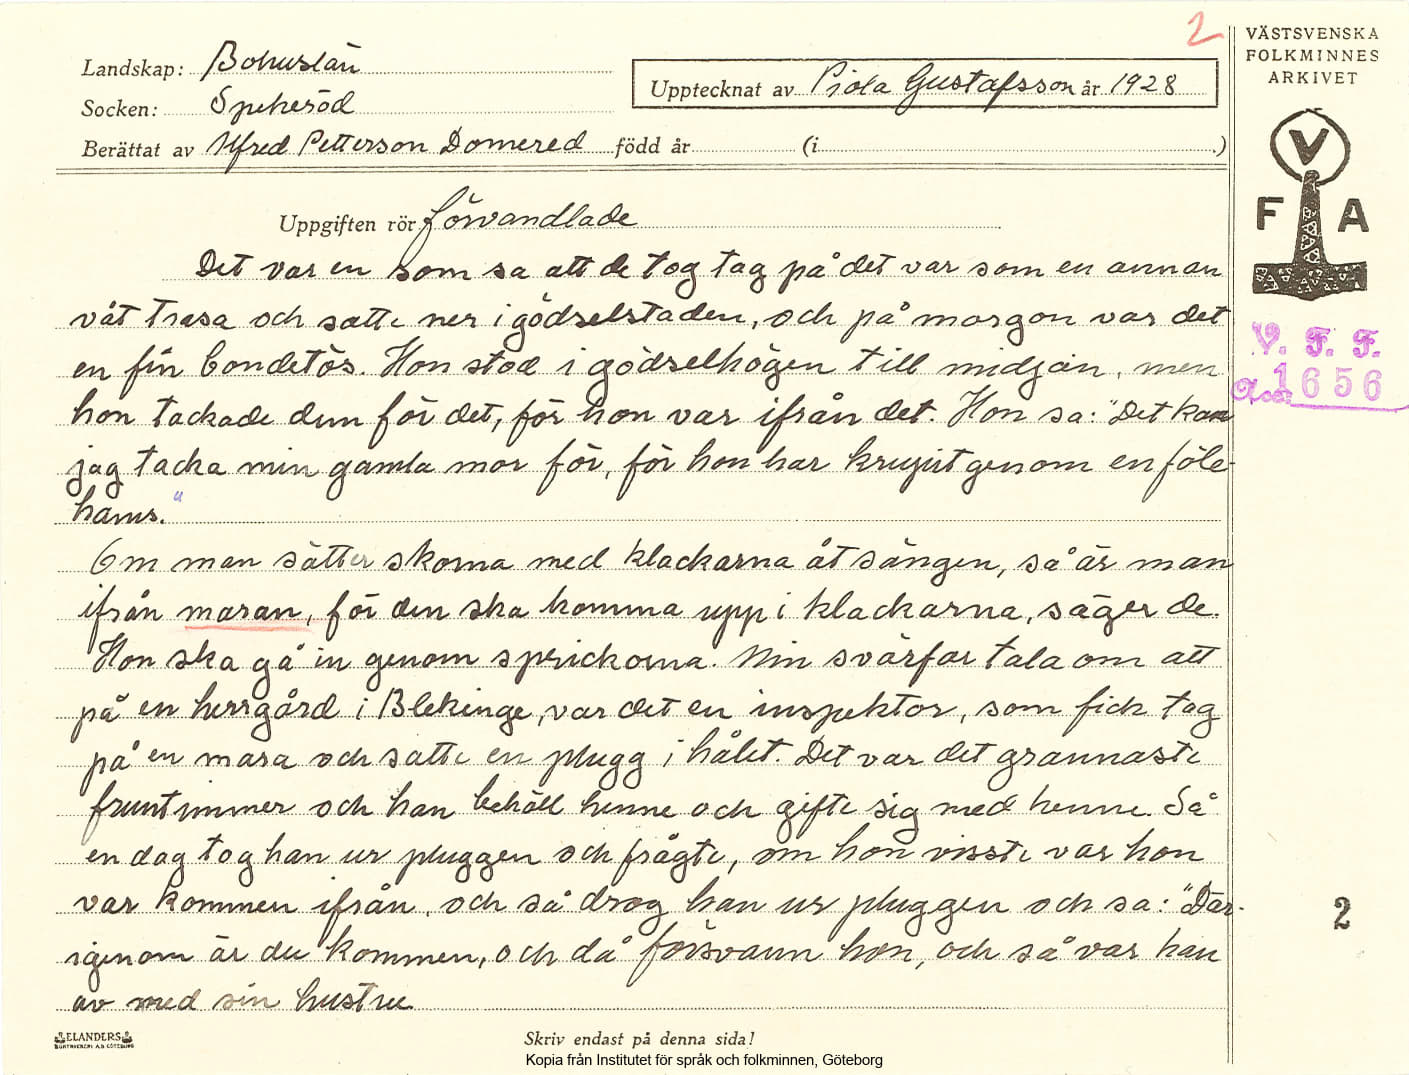 2
VÄSTSVENSKA
FOLKMINNES
ARKIVET
Landskap: Bohuslän
Socken: Spekeröd
Upptecknat av Viola Gustafsson år 1928
Berättat av Alfred Petterson Domered född år (i )
V
F A
Uppgiften rör förvandlade
Det var en som sa att de tog tag på det var som en annan
våt trasa och satte ner i gödselstaden, och på morgon var det
en fin bondetös. Hon stod i gödselhögen till midjan, men
hon tackade dem för det, för hon var ifrån det. Hon sa: "Det kan
jag tacka min gamla mor för, för hon har krupit genom en föle-
hams."
Om man sätter skorna med klackarna åt sängen, så är man
ifrån maran, för den ska komma upp i klackarna, säger de.
Hon ska gå in genom sprickorna. Min svärfar tala om att
på en herrgård i Blekinge, var det en inspektor, som fick tag
på en mara och satte en plugg i hålet. Det var det grannaste
fruntimmer och han behöll henne och gifte sig med henne. Så
en dag tog han ur pluggen och frågte, om hon visste var hon
var kommen ifrån, och så drog han ur pluggen och sa: "Där-
igenom är du kommen, och då försvann hon, och så var han
av med sin hustru
V. F. F.
Acc. 1656
2
ELANDERS
BOKTRYCKERI A.B. GÖTEBORG
Skriv endast på denna sida!
Kopia från Institutet för språk och folkminnen, Göteborg